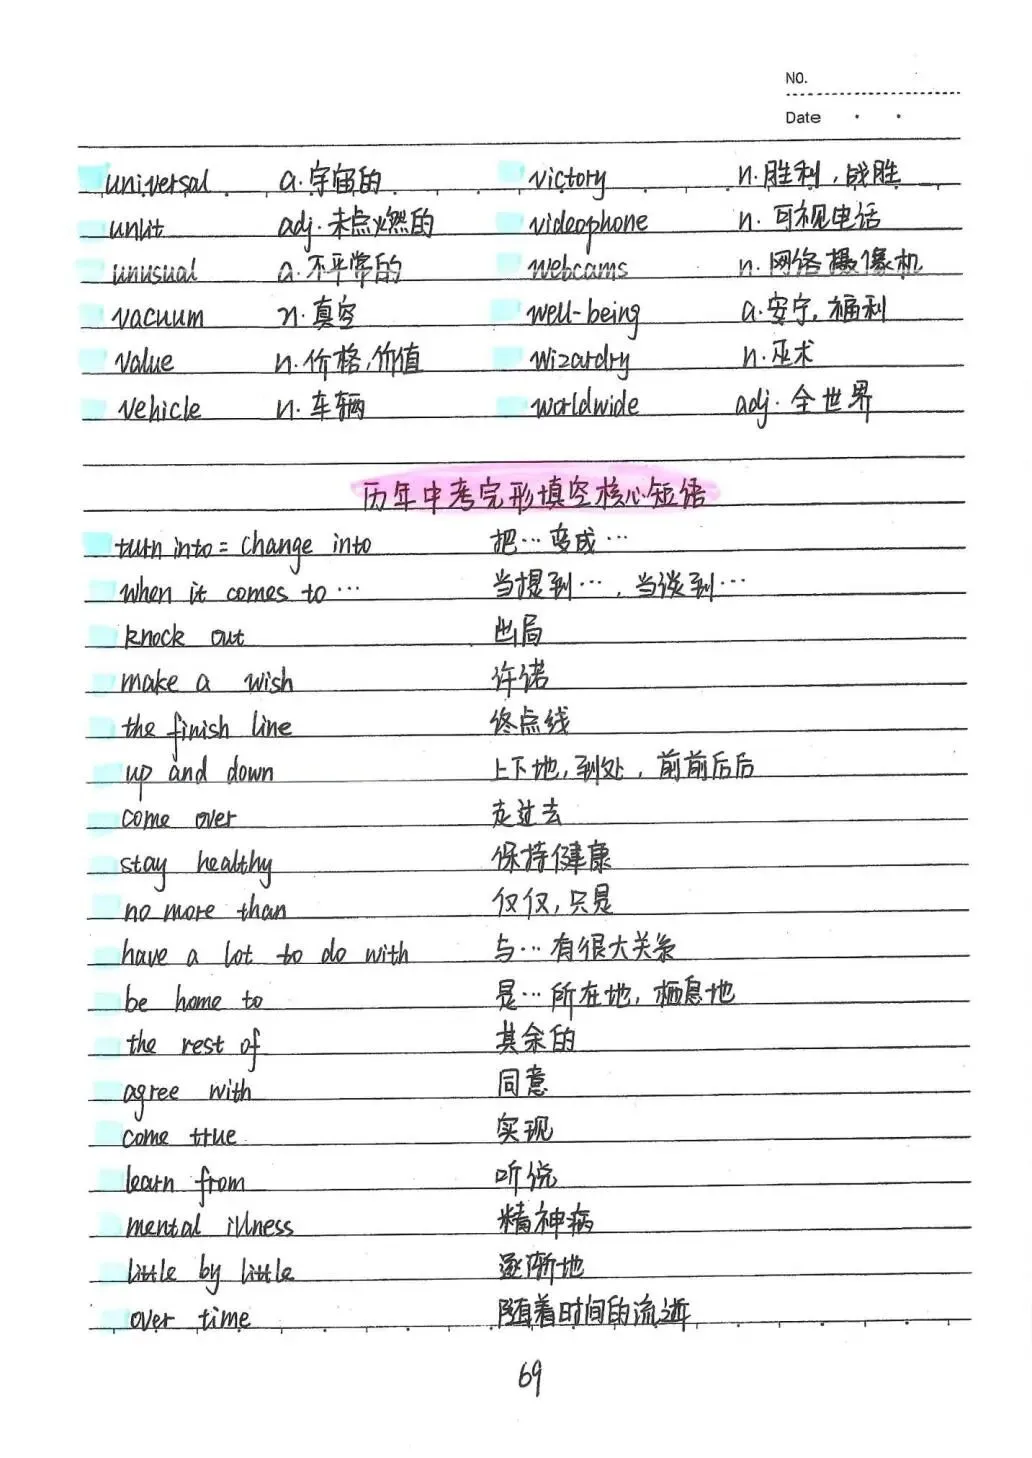 NO.
Date
universal a.宇宙的 victory n.胜利,战胜
unlit adj.未点燃的 videophone n.可视电话
unusual a.不平常的 webcams n.网络摄像机
vacuum n.真空 well-being a.安宁,福利
value n.价格,价值 wizardry n.巫术
vehicle n.车辆 worldwide adj.全世界
历年中考完形填空核心短语
turn into = change into 把…变成…
when it comes to… 当提到…,当谈到…
knock out 出局
make a wish 许诺
the finish line 终点线
up and down 上下地,到处,前前后后
come over 走过去
stay healthy 保持健康
no more than 仅仅,只是
have a lot to do with 与…有很大关系
be home to 是…所在地,栖息地
the rest of 其余的
agree with 同意
come true 实现
learn from 听说
mental illness 精神病
little by little 逐渐地
over time 随着时间的流逝
69